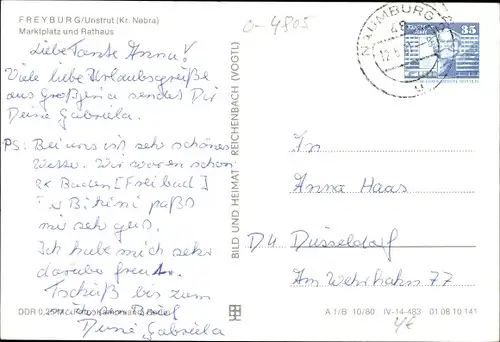 FREYBURG/Unstrut (Kr. Nebra)
Marktplatz und Rathaus
0-4805
Liebe Tante Anna!
Viele liebe Urlaubsgrüße
aus Großjena sendet Dir
Deine Gabriela.
PS: Bei uns ist sehr schönes
Wetter. Wir waren schon
2x Baden [Freibad]
Bikini paßt
mir sehr gut.
Ich habe mich sehr
darüber gefreut.
Tschüß bis zum
Deine Gabriela
DDR 0,25 M
BILD UND HEIMAT REICHENBACH (VOGTL)
NAUMBURG
35
An
Anna Haas
D4 Düsseldorf
Am Wehrhahn 77
A 1/B 10/80 IV-14-483 01 08 10 141